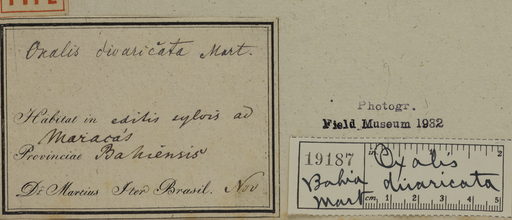 TYPE
Oxalis divaricata Mart.
Habitat in editis sylvis ad
Maracás
Provinciae Bahiensis
Dr. Martius Iter Brasil. Nov
Photogr.
Field Museum 1932
19187 Oxalis
Bahia divaricata
Mart
in 1 2
cm. 1 2 3 4 5